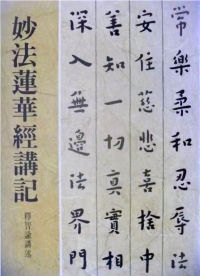 常樂柔和忍辱法
安住慈悲喜捨中
善知一切真實相
深入無邊法界門
妙法蓮華經講記
釋智諭講述